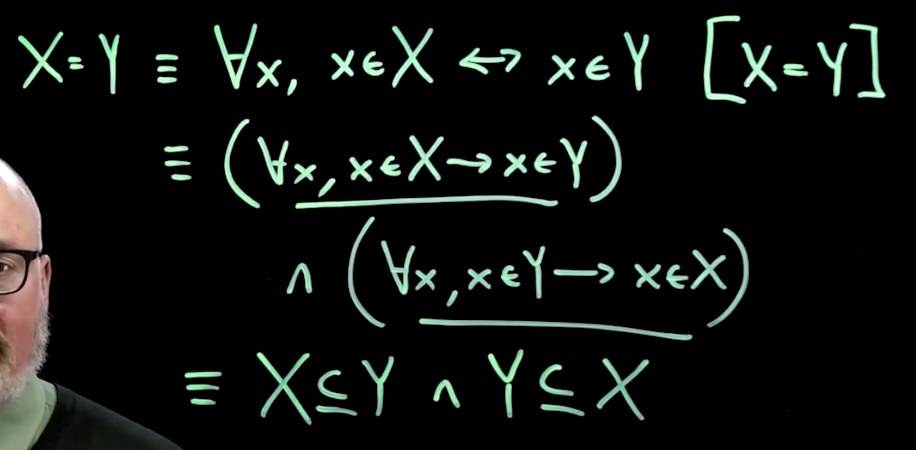 X=Y ≡ ∀x, x∈X ↔ x∈Y [X=Y]
≡ (∀x, x∈X→x∈Y)
∧ (∀x, x∈Y→x∈X)
≡ X⊆Y ∧ Y⊆X